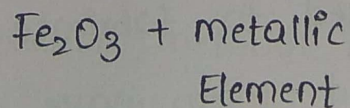 Fe₂O₃ + metallic
Element